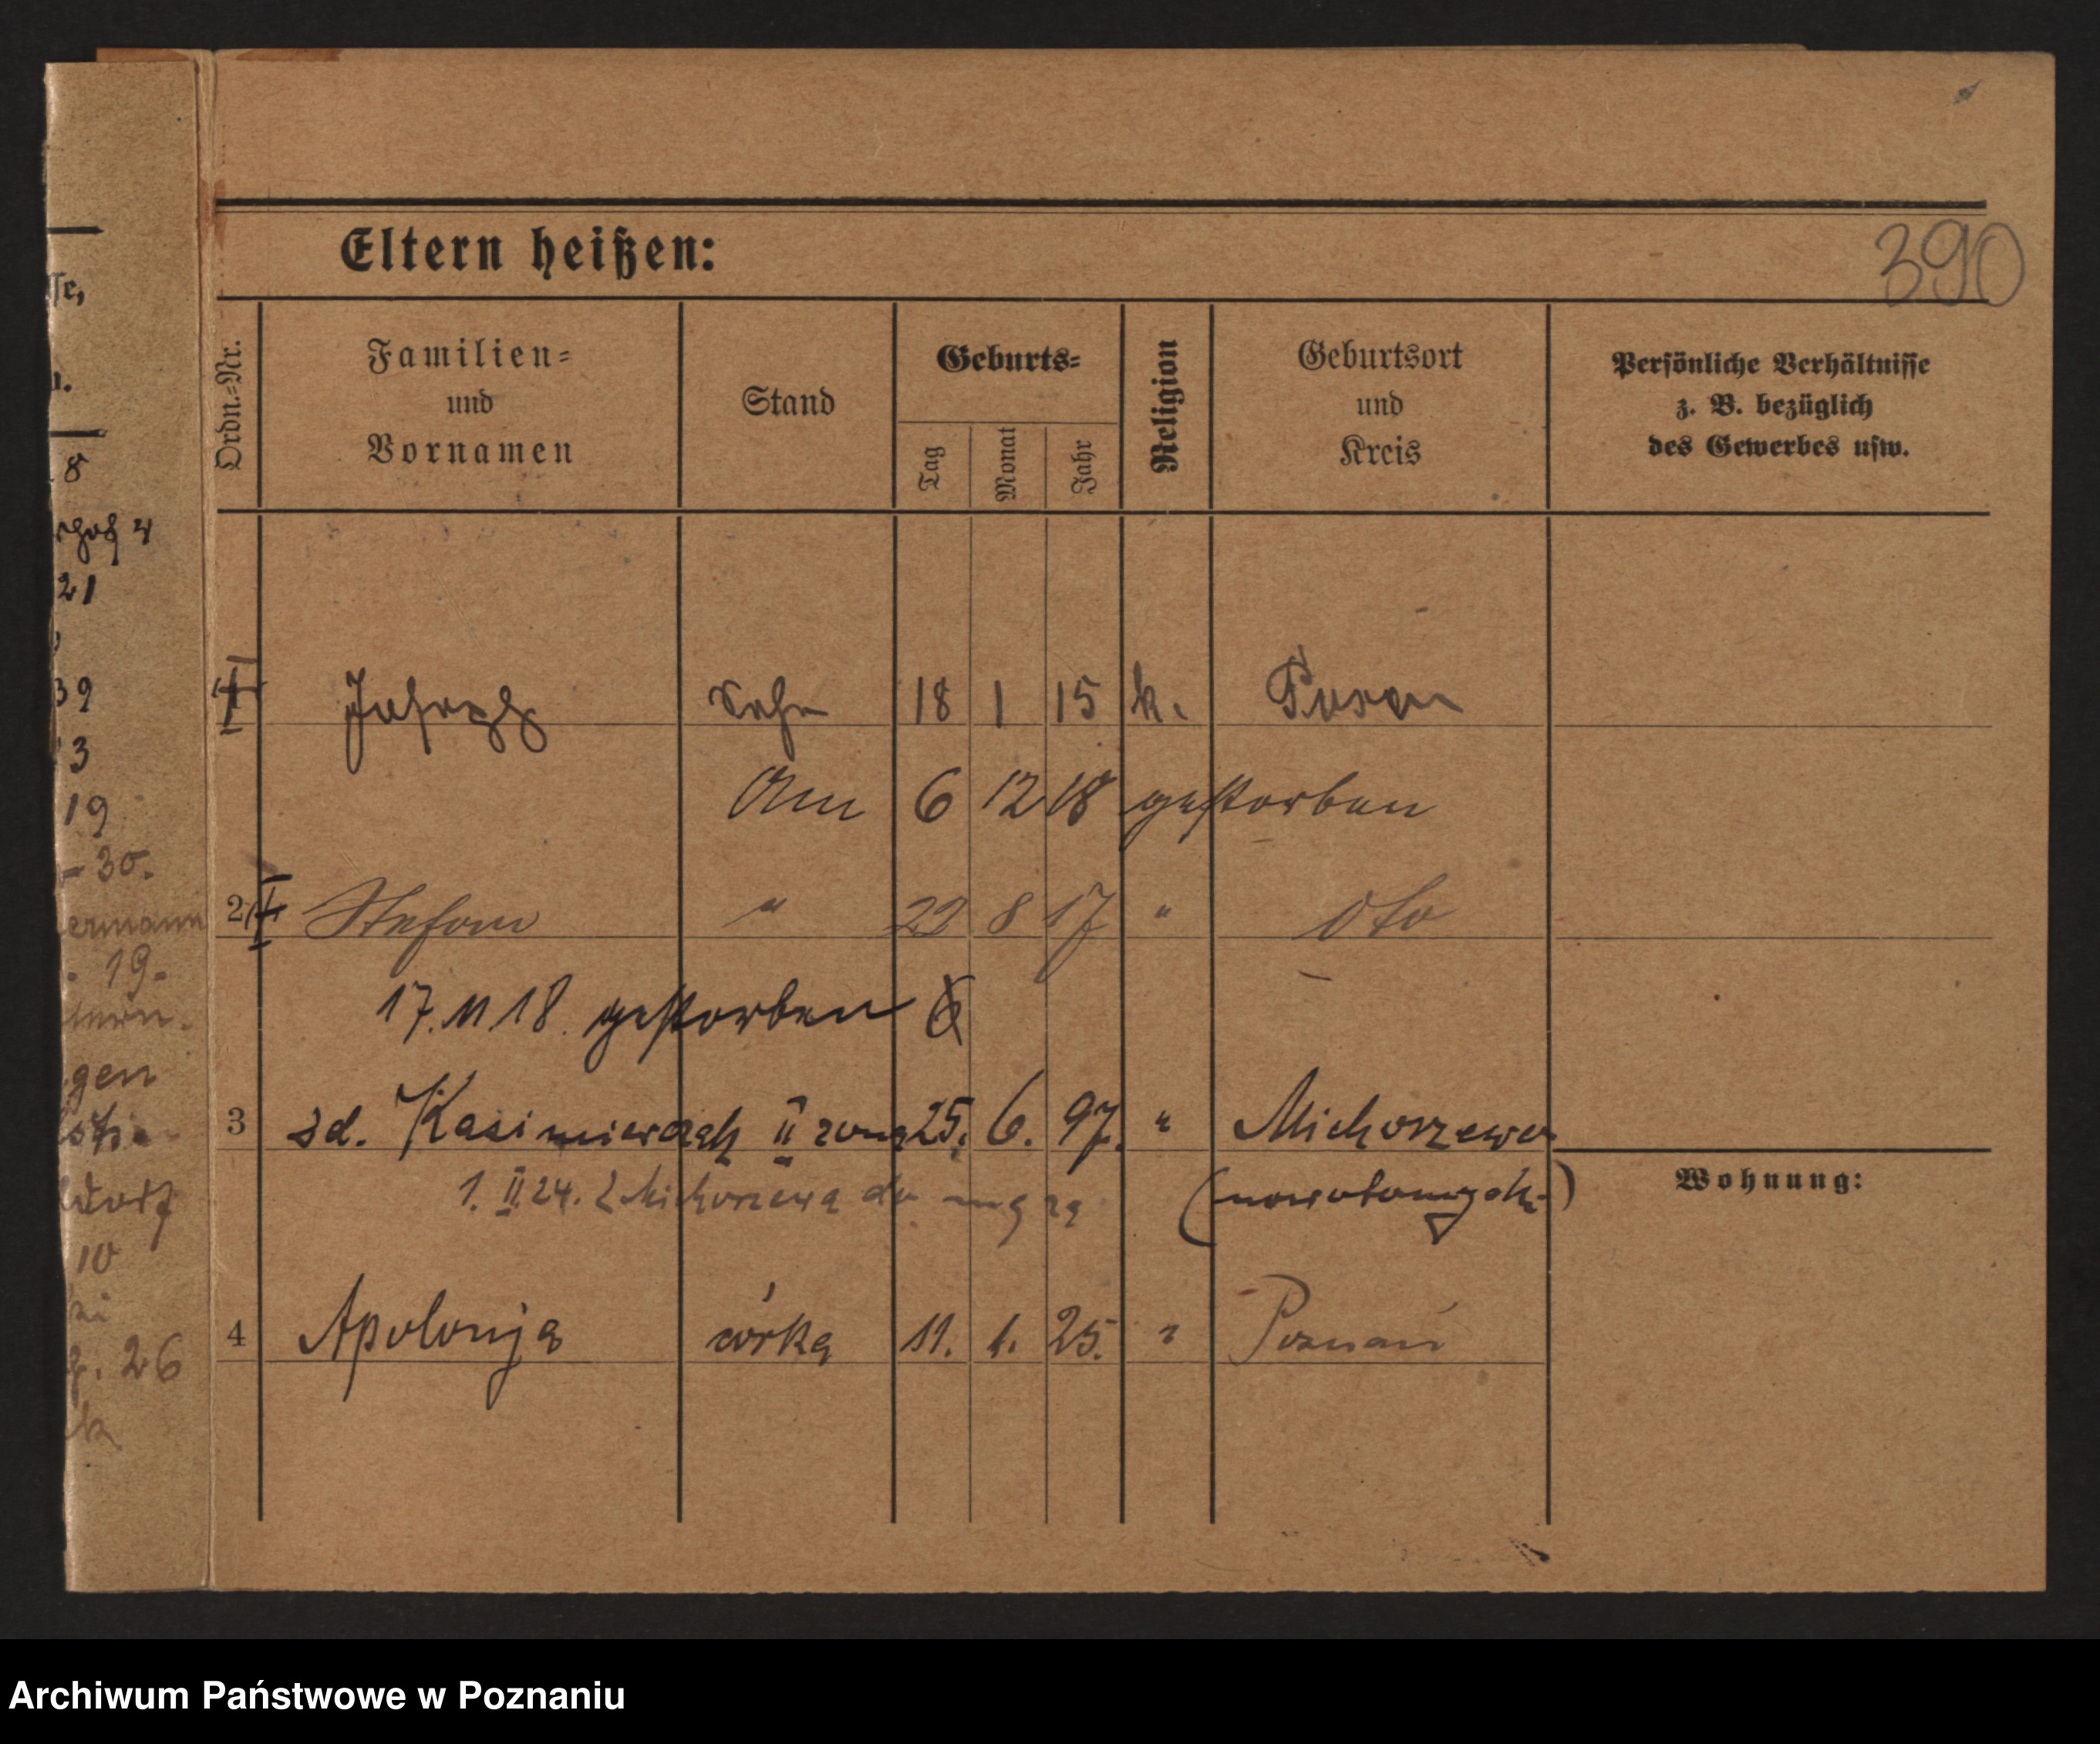 390
Eltern heißen:
Ordn.-Nr.
Familien- und Vornamen
Stand
Geburts-
Tag
Monat
Jahr
Religion
Geburtsort und Kreis
Persönliche Verhältnisse z. B. bezüglich des Gewerbes usw.
Joseph Sohn 18 1 15 k. Posen
Am 6 12 18 gestorben
2 Stefan " 22 8 17 " dto
17. 11 18. gestorben
3 zd. Kasimierczak II żona 25. 6. 97. " Michorzewo
1. II 24. z Michorzewa do męża (nowotomysk.)
Wohnung:
4 Apolonja córka 11. 1. 25. " Poznań
8
21
39
3
19
30.
ermann
19.
gen
dorf
10
26
Archiwum Państwowe w Poznaniu